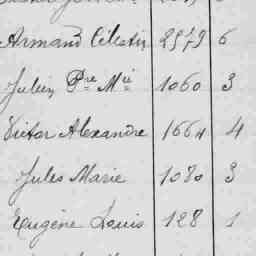 Armand Célestin 2979 6
Julien Pre Mie 1060 3
Victor Alexandre 1664 4
Jules Marie 1080 3
Eugène Louis 128 1